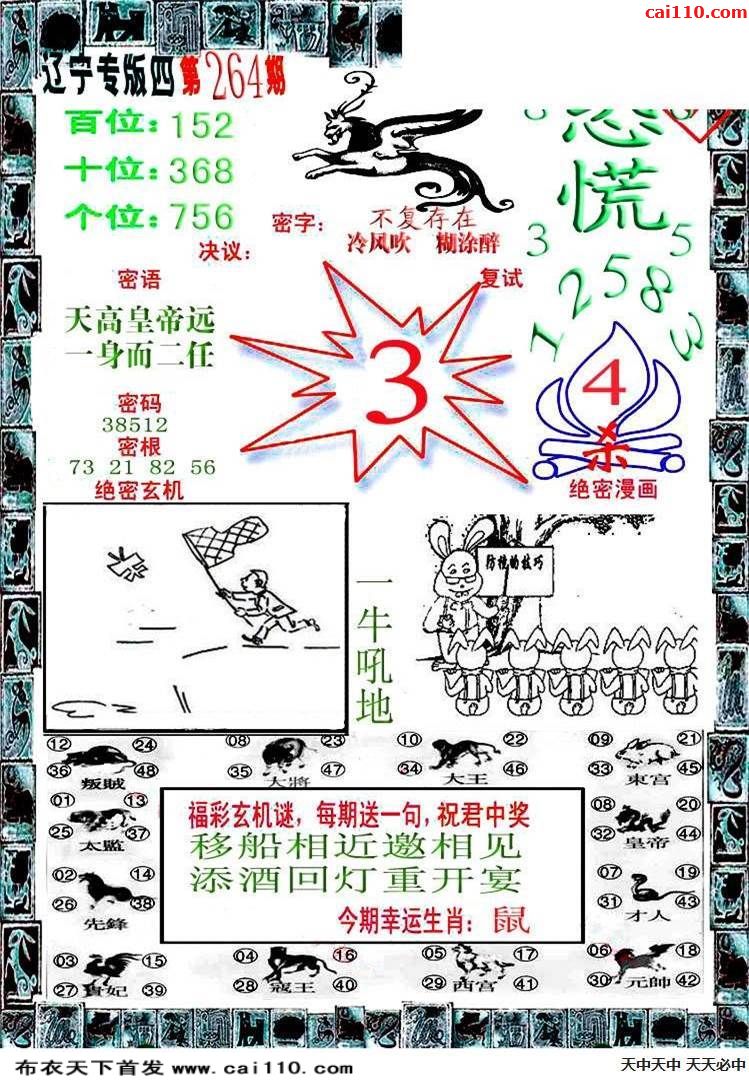 cai110.com
辽宁专版四第264期
百位：152
十位：368
个位：756
密字：
不复存在
冷风吹 糊涂醉
决议：
复试
慌
3 5
1 2 5 8 3
密语
天高皇帝远
一身而二任
密码
38512
密根
73 21 82 56
绝密玄机
3
4
杀
绝密漫画
一牛吼地
12 24
36 48
叛贼
08 23
35 47
大將
10 22
34 46
大王
09 21
33 45
東宫
01 13
25 37
太監
08 20
32 44
皇帝
02 14
26 38
先鋒
07 19
31 43
才人
福彩玄机谜，每期送一句，祝君中奖
移船相近邀相见
添酒回灯重开宴
今期幸运生肖：鼠
03 15
27 39
貴妃
04 16
28 40
寇王
05 17
29 41
西宫
06 18
30 42
元帥
布衣天下首发 www.cai110.com
天中天中 天天必中